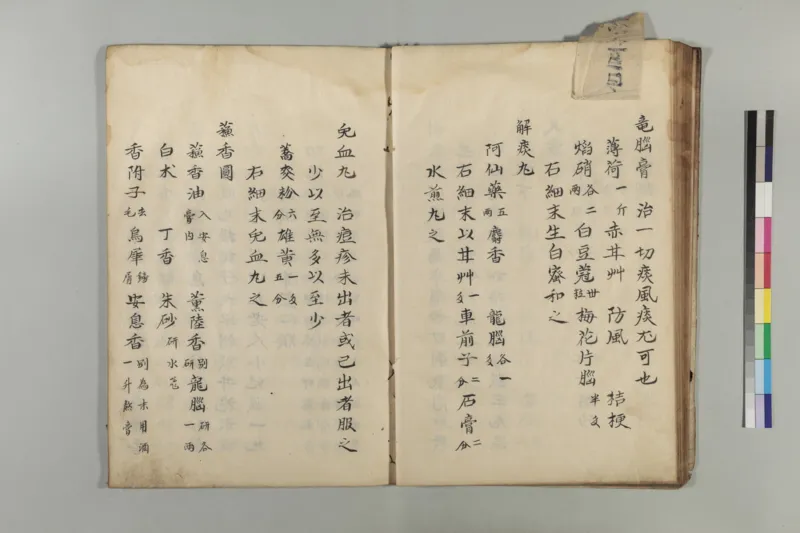 竜腦膏　治一切痰風痰尤可也
薄荷一斤赤甘艸　防風　桔梗
焰硝各二両白豆蔻卅粒梅花片腦半戔
右細末生白蜜和之
解痰丸
阿仙藥五両麝香　龍腦各一戔
右細末以甘艸一戔車前子二分石膏二分
水煎丸之
兔血丸　治痘疹未出者或已出者服之
少以至無多以至少
蕎麥粉六分雄黃一戔五分
右細末兔血丸之
蘓香圓
蘓香油入安息膏内　薰陸香別研龍腦研各一両
白朮　丁香　朱砂研水飛
香附子去毛烏犀鎊屑安息香別為末用酒一升熬膏